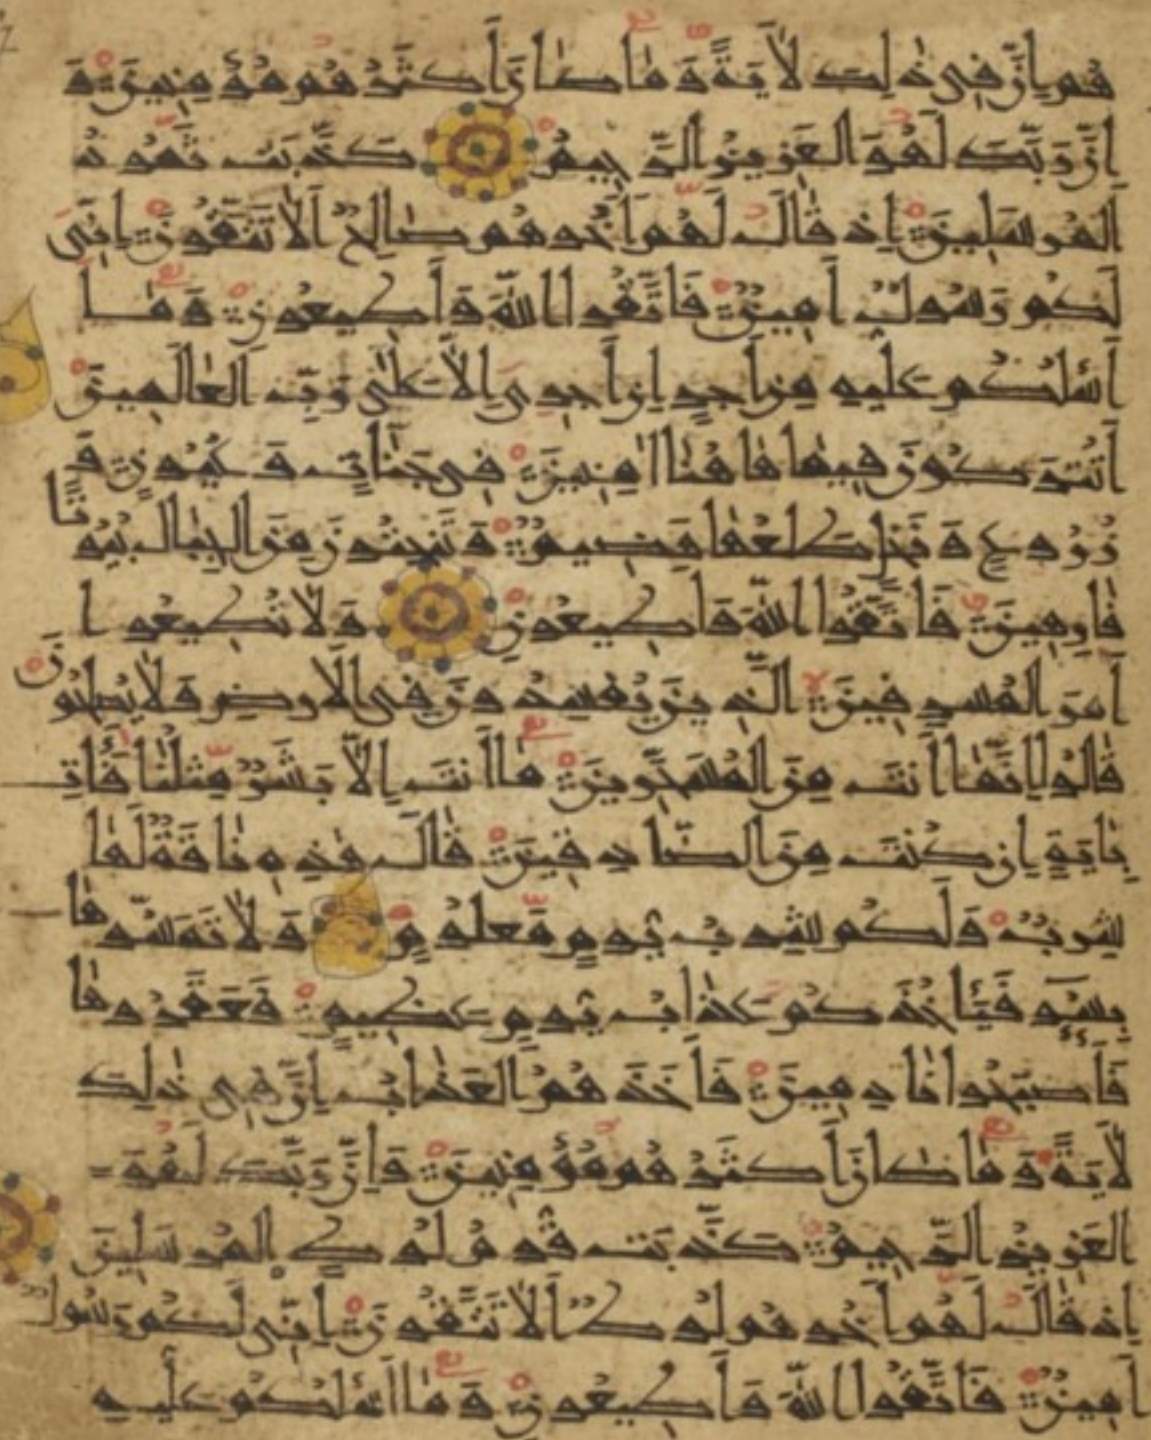 هم إن في ذلك لآية وما كان أكثرهم مؤمنين و
إن ربك لهو العزيز الرحيم كذبت ثمود
المرسلين إذ قال لهم أخوهم صالح ألا تتقون إني
لكم رسول أمين فاتقوا الله وأطيعون وما
أسئلكم عليه من أجر إن أجري إلا على رب العالمين
أتتركون في ما هاهنا آمنين في جنات وعيون و
زروع ونخل طلعها هضيم وتنحتون من الجبال بيوتا
فارهين فاتقوا الله وأطيعون ولا تطيعوا
أمر المسرفين الذين يفسدون في الأرض ولا يصلحون
قالوا إنما أنت من المسحرين ما أنت إلا بشر مثلنا فأت
بآية إن كنت من الصادقين قال هذه ناقة لها
شرب ولكم شرب يوم معلوم ولا تمسوها
بسوء فيأخذكم عذاب يوم عظيم فعقروها
فأصبحوا نادمين فأخذهم العذاب إن في ذلك
لآية وما كان أكثرهم مؤمنين وإن ربك لهو
العزيز الرحيم كذبت قوم لوط المرسلين
إذ قال لهم أخوهم لوط ألا تتقون إني لكم رسول
أمين فاتقوا الله وأطيعون وما أسئلكم عليه